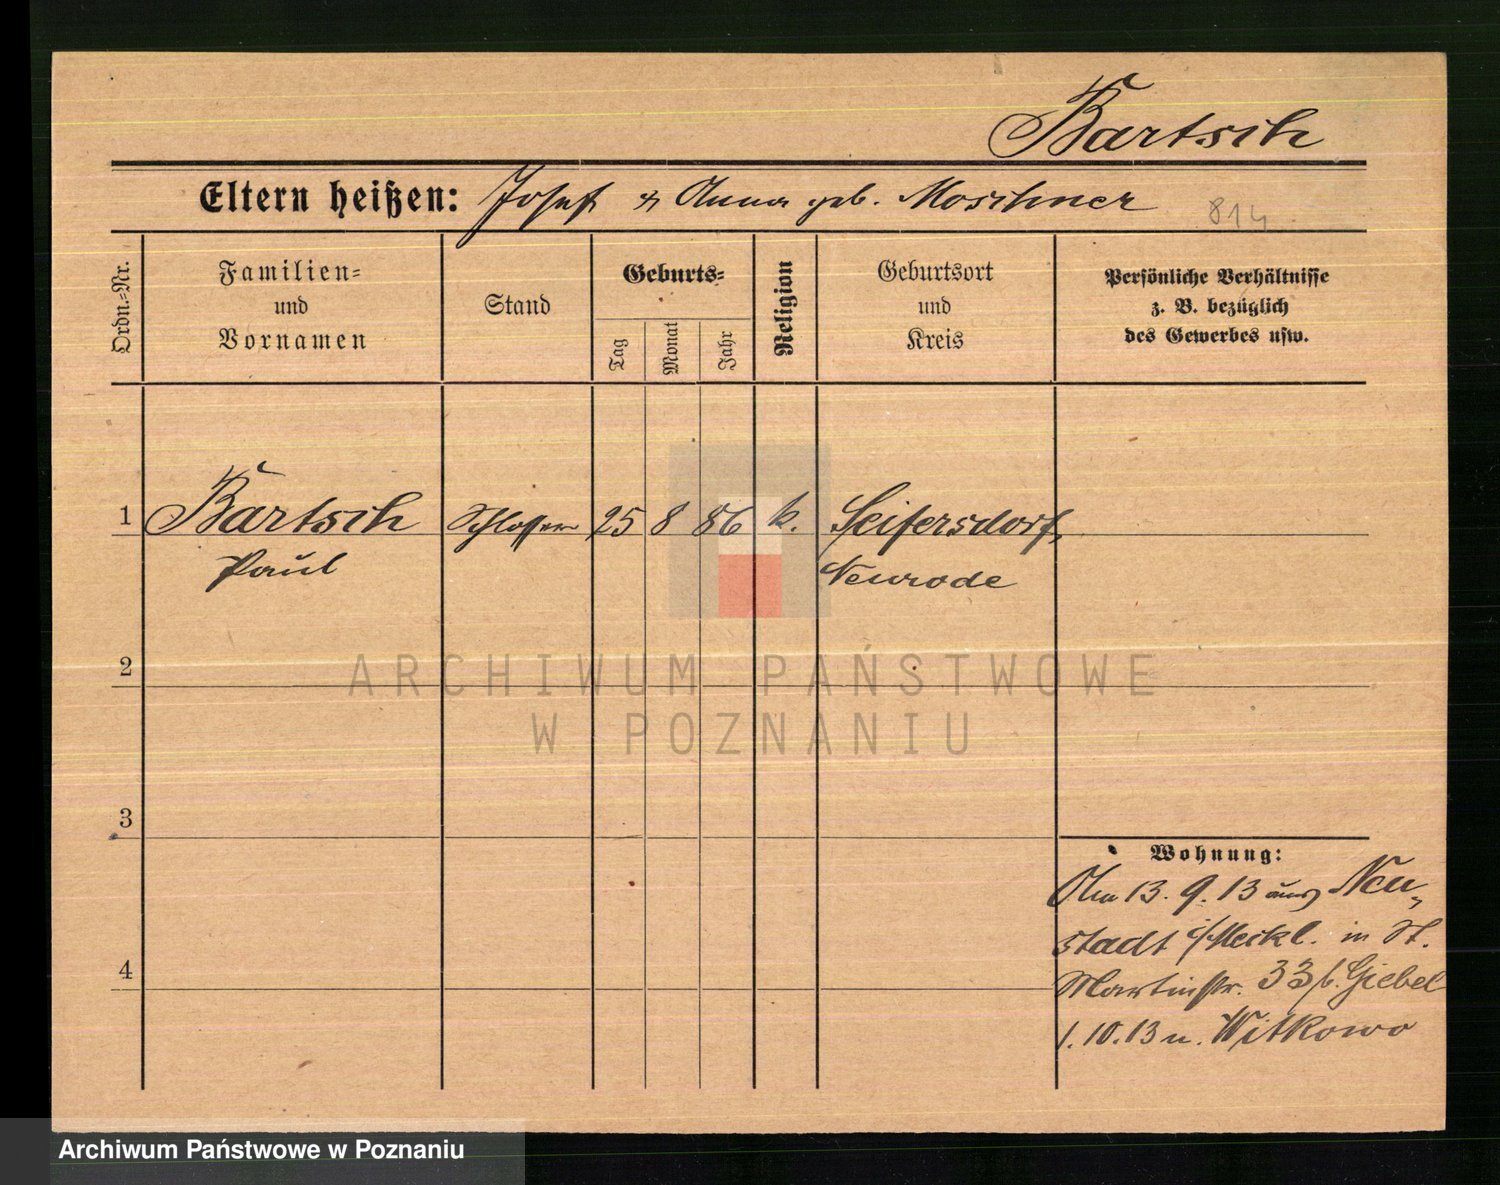 Bartsch
Eltern heißen: Josef & Anna geb. Moschner
814
Ordn.-Nr.
Familien-
und
Vornamen
Stand
Geburts-
Tag
Monat
Jahr
Religion
Geburtsort
und
Kreis
Persönliche Verhältnisse
z. B. bezüglich
des Gewerbes usw.
1 Bartsch Schlosser 25 8 86 k. Seifersdorf,
Paul Neurode
2
ARCHIWUM PAŃSTWOWE
W POZNANIU
3
Wohnung:
Am 13. 9. 13 aus Neu-
stadt i/Meckl. in St.
4
Martinstr. 33 b. Giebel
1. 10. 13 n. Witkowo
Archiwum Państwowe w Poznaniu